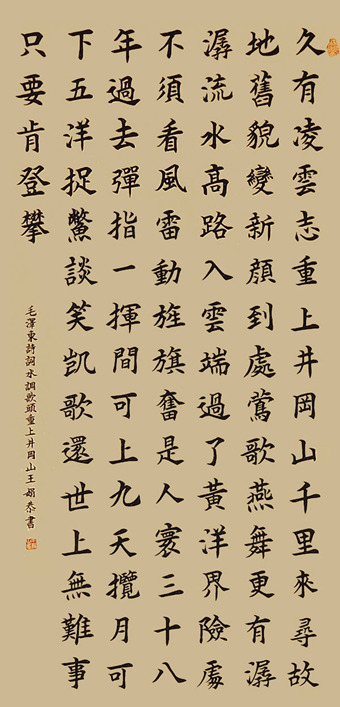 久有凌雲志重上井岡山千里來尋故
地舊貌變新顏到處鶯歌燕舞更有潺
潺流水高路入雲端過了黃洋界險處
不須看風雷動旌旗奮是人寰三十八
年過去彈指一揮間可上九天攬月可
下五洋捉鱉談笑凱歌還世上無難事
只要肯登攀
毛澤東詩詞水調歌頭重上井岡山王娟恭書